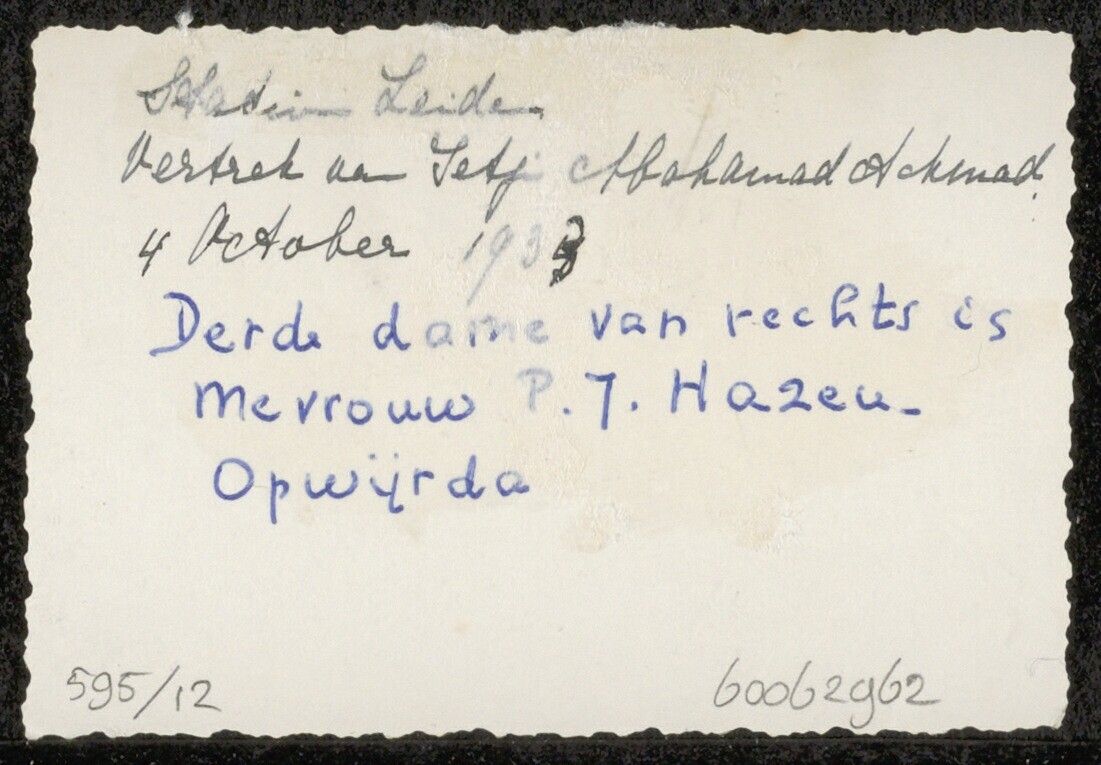 Station Leiden
Vertrek van Setji Mohamad Achmad.
4 October 193
Derde dame van rechts is
Mevrouw P. J. Hazeu-
Opwijrda
595/12
60062962